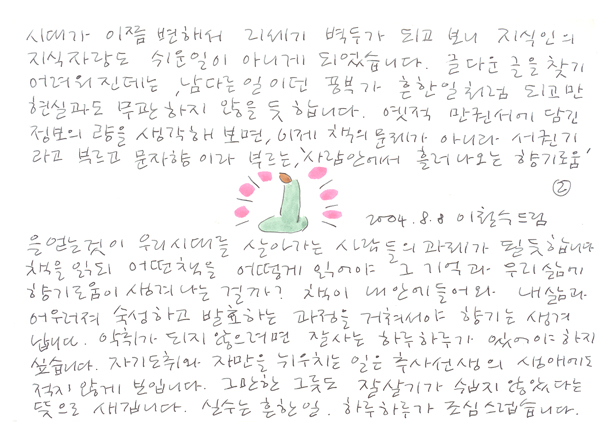 시대가 이쯤 변해서 21세기 벽두가 되고 보니 지식인의
지식자랑도 쉬운일이 아니게 되었습니다. 글다운 글을 찾기
어려워진데는, 남다른일이던 풍부가 흔한일처럼 되고만
현실과도 무관하지 않을 듯 합니다. 옛적 만권서에 담긴
정보의 량을 생각해 보면, 이제 책의 문제가 아니라 서권기
라고 부르고 문자향이라 부르는, '사람안에서 흘러나오는 향기로움'
②
2004.8.8 이철수드림
을 얻는것이 우리시대를 살아가는 사람들의 과제가 될듯합니다
책을 읽되 어떤책을 어떻게 읽어야 그 기억과 우리삶에
향기로움이 생겨나는 걸까? 책이 내안에들어와 내삶과
어우러져 숙성하고 발효하는 과정을 거쳐서야 향기는 생겨
납니다. 악취가 되지 않으려면 잘사는 하루하루가 있어야하지
싶습니다. 자기도취와 자만을 뉘우치는 일은 추사선생의 생애에도
적지 않게 보입니다. 그만한 그릇도 잘살기가 수습지 않았다는
뜻으로 새깁니다. 실수는 흔한일. 하루하루가 조심스럽습니다.